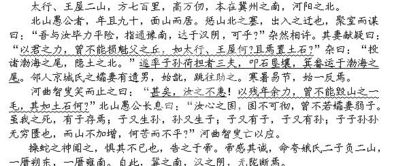 太行、王屋二山,方七百里,高万仞,本在冀州之南,河阳之北。
北山愚公者,年且九十,面山而居。惩山北之塞,出入之迂也,聚室而谋
曰:“吾与汝毕力平险,指通豫南,达于汉阴,可乎?”杂然相许。其妻献疑曰:
“以君之力,曾不能损魁父之丘,如太行、王屋何?且焉置土石?”杂曰:“投
诸渤海之尾,隐土之北。”遂率子孙荷担者三夫,叩石垦壤,箕畚运于渤海之
尾。邻人京城氏之孀妻有遗男,始龀,跳往助之。寒暑易节,始一反焉。
河曲智叟笑而止之曰:“甚矣,汝之不惠!以残年余力,曾不能毁山之一
毛,其如土石何?”北山愚公长息曰:“汝心之固,固不可彻,曾不若孀妻弱子。
虽我之死,有子存焉;子又生孙,孙又生子;子又有子,子又有孙;子子孙孙
无穷匮也,而山不加增,何苦而不平?”河曲智叟亡以应。
操蛇之神闻之,惧其不已也,告之于帝。帝感其诚,命夸娥氏二子负二山,
一厝朔东,一厝雍南。自此,冀之南,汉之阴,无陇断焉。